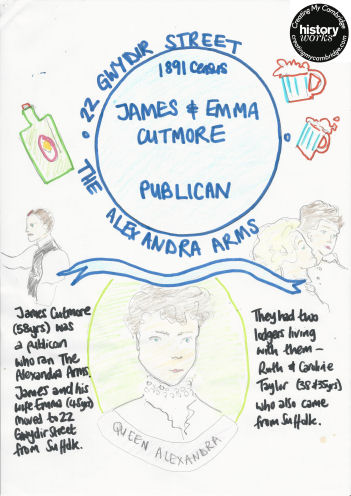 Creating My Cambridge
history
works
creatingmycambridge.com
• 22 GWYDIR STREET •
1891 Census
JAMES & EMMA
CUTMORE
PUBLICAN
THE ALEXANDRA ARMS
James Cutmore
(58yrs) was
a publican
who ran The
Alexandra Arms.
James and his
wife Emma (45yrs)
moved to 22
Gwydir Street
from Suffolk.
They had two
lodgers living
with them –
Ruth &
Taylor (38 & 35yrs)
who also came
from Suffolk.
QUEEN ALEXANDRA